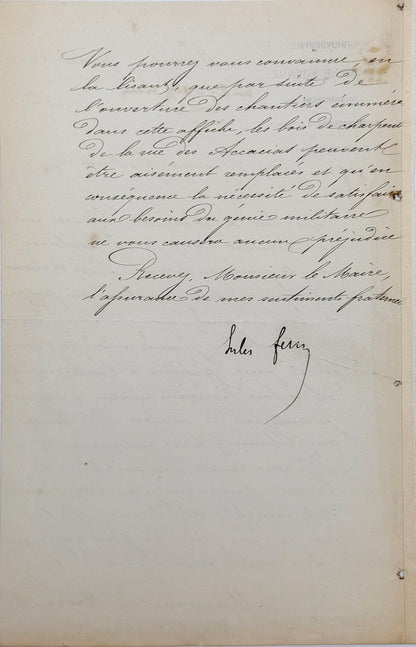 Vous pourrez vous convaincre, en
la lisant, que par suite de
l'ouverture des chantiers énumére
dans cette affiche, les bois de charpent
de la rue des Accacias peuvent
être aisement remplacés et qu'en
conséquence la nécessité de satisfair
aux besoins du genie militaire
ne vous causera aucun préjudice
Recevez, Monsieur le Maire,
l'assurance de mes sentiments fraterne
Jules Ferry